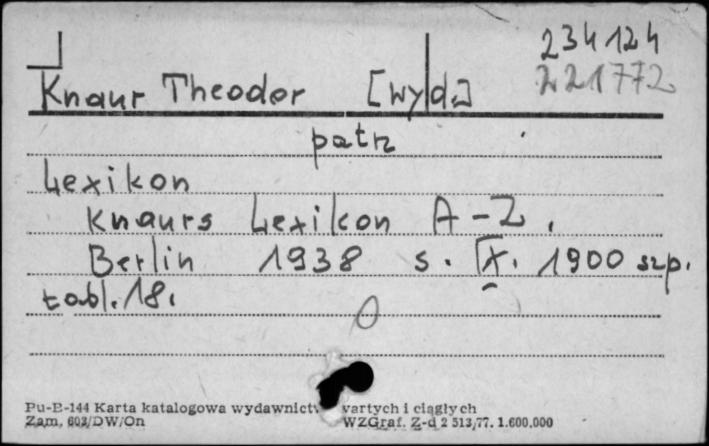 234124
221772
Knaur Theodor [wyd.]
patrz
Lexikon
Knaurs Lexikon A-Z.
Berlin 1938 s. X. 1900 szp.
tabl. 18.
Pu-B-144 Karta katalogowa wydawnictw zwartych i ciągłych
Zam. 603/DW/On WZGraf. Z-d 2 513/77. 1.600.000